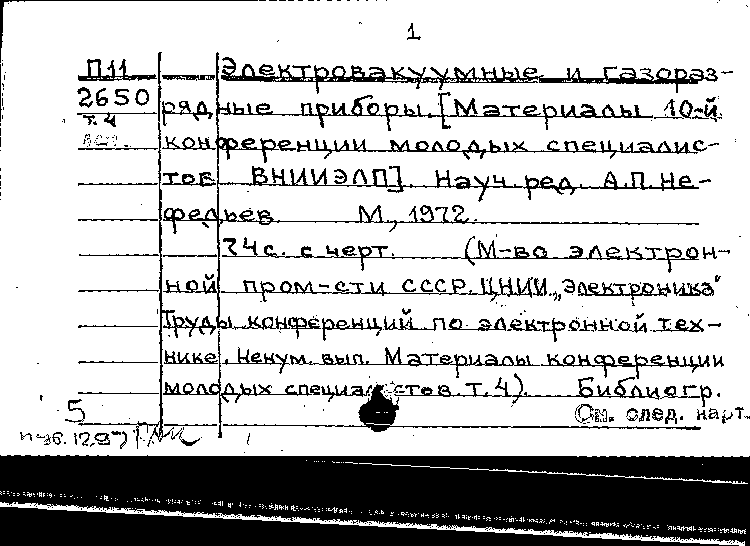 1
П11 Электровакуумные и газораз-
2650 рядные приборы. [Материалы 10-й
т. 4
конференции молодых специалис-
тов ВНИИЭЛП]. Науч. ред. А.П. Не-
федьев. М., 1972.
74с. с черт. (М-во электрон-
ной пром-сти СССР. ЦНИИ „Электроника"
Труды конференций по электронной тех-
нике. Ненум. вып. Материалы конференции
молодых специалистов. Т. 4). Библиогр.
5 См. след. карт.